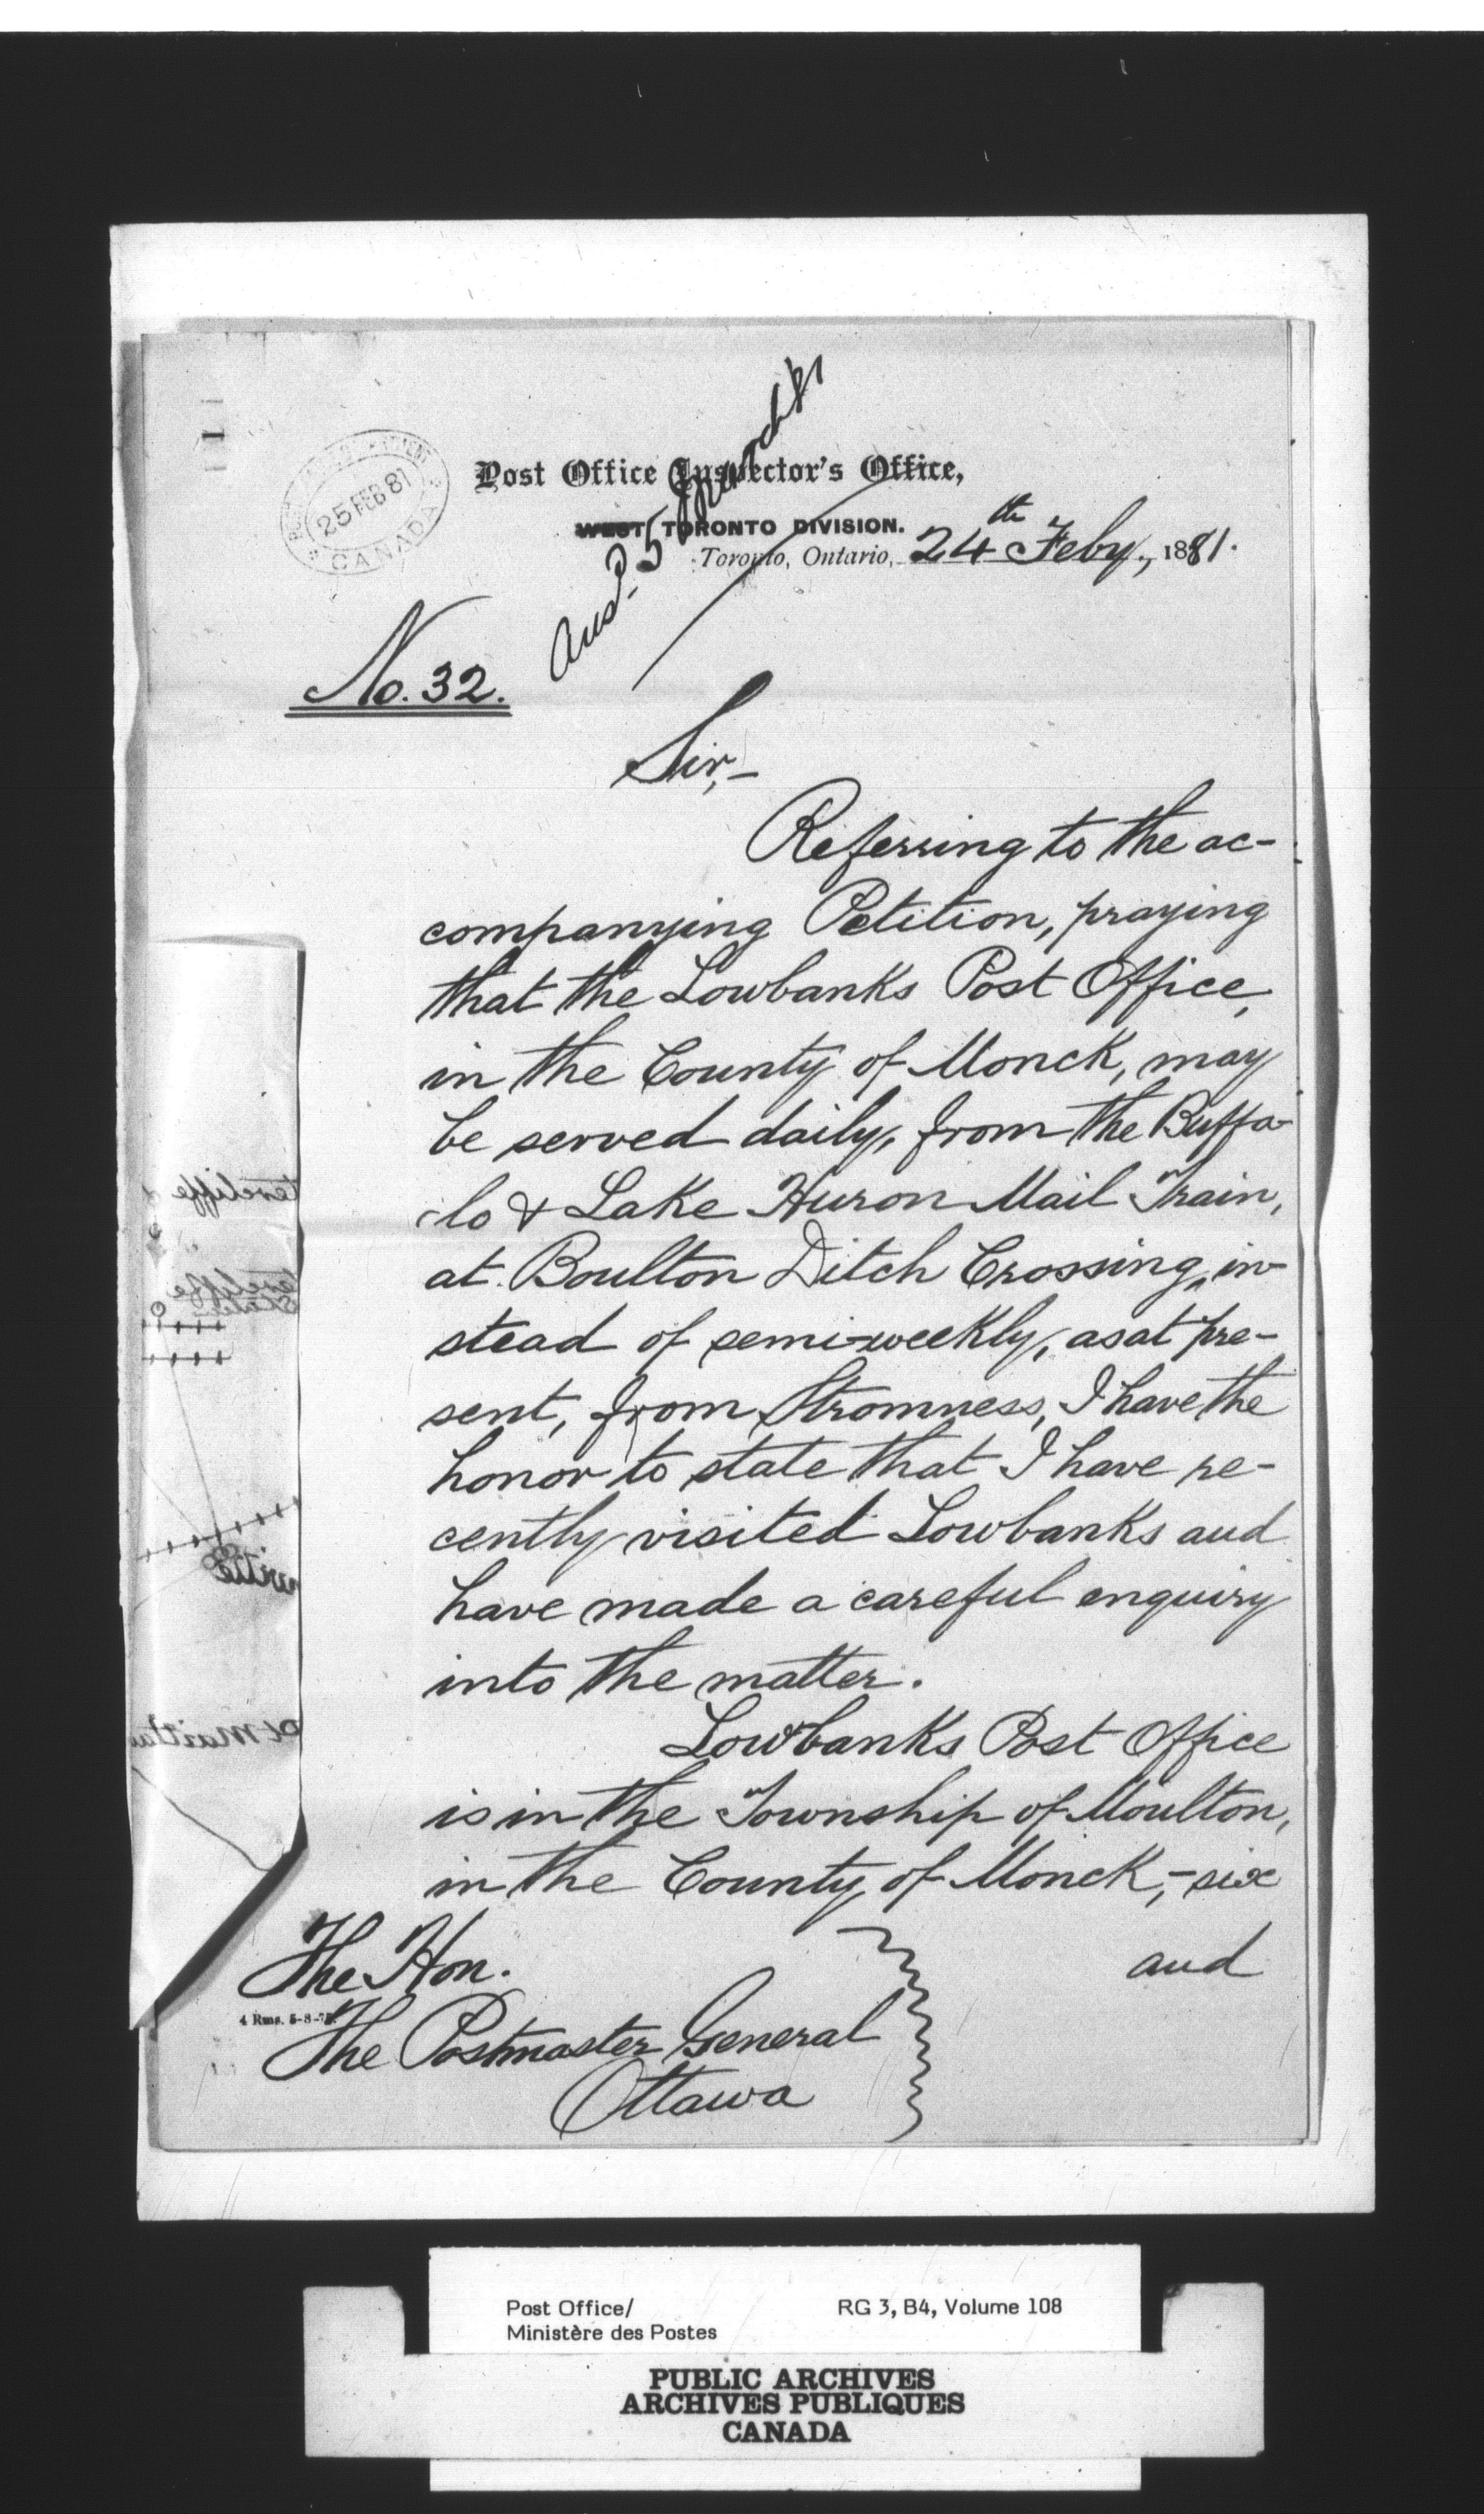 25 FEB 81
CANADA
Post Office Inspector's Office,
WEST TORONTO DIVISION.
Toronto, Ontario, 24th Feby, 1881.
Ansd. 5 March 81
No. 32.
Sir,-
Referring to the ac-
companying Petition, praying
that the Lowbanks Post Office,
in the County of Monck, may
be served daily, from the Buffa-
lo & Lake Huron Mail Train,
at Boulton Ditch Crossing, in-
stead of semi-weekly, as at pre-
sent, from Stromness, I have the
honor to state that I have re-
cently visited Lowbanks and
have made a careful enquiry
into the matter.
Lowbanks Post Office
is in the Township of Moulton,
in the County of Monck,- six
and
The Hon.
4 Rms. 5-8-
The Postmaster General
Ottawa
Post Office/
Ministère des Postes
RG 3, B4, Volume 108
PUBLIC ARCHIVES
ARCHIVES PUBLIQUES
CANADA